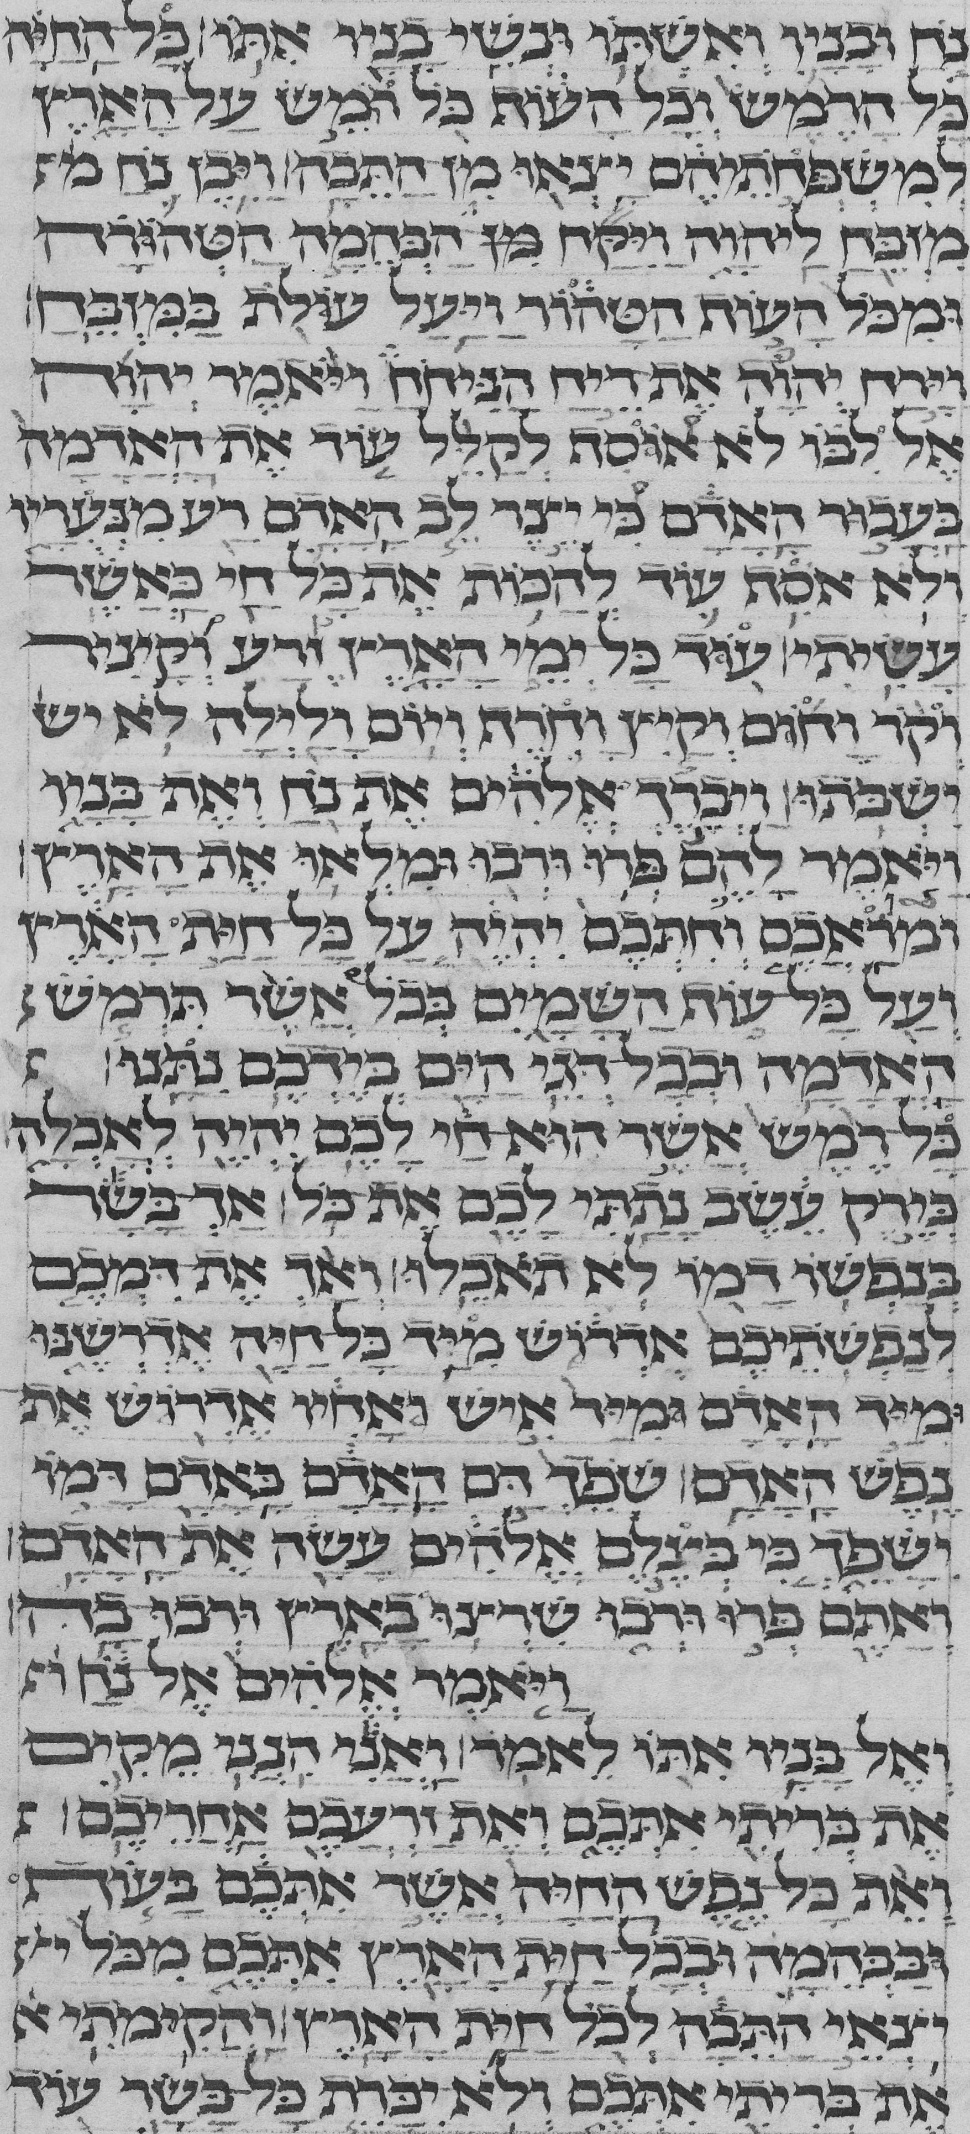 נח ובניו ואשתו ונשי בניו אתו׃ כל החיה
כל הרמש וכל העוף כל רמש על הארץ
למשפחתיהם יצאו מן התבה׃ ויבן נח מ
מזבח ליהוה ויקח מן הבהמה הטהורה
ומכל העוף הטהור ויעל עולת במזבח׃
וירח יהוה את ריח הניחח ויאמר יהוה
אל לבו לא אוסף לקלל עוד את האדמה
בעבור האדם כי יצר לב האדם רע מנעריו
ולא אסף עוד להכות את כל חי כאשר
עשיתי׃ עוד כל ימי הארץ זרע וקציר
וקר וחום וקיץ וחרף ויום ולילה לא יש
ישבתו׃ ויברך אלהים את נח ואת בניו
ויאמר להם פרו ורבו ומלאו את הארץ׃
ומוראכם וחתכם יהיה על כל חית הארץ
ועל כל עוף השמים בכל אשר תרמש
האדמה ובכל דגי הים בידכם נתנו׃
כל רמש אשר הוא חי לכם יהיה לאכלה
כירק עשב נתתי לכם את כל׃ אך בשר
בנפשו דמו לא תאכלו׃ ואך את דמכם
לנפשתיכם אדרוש מיד כל חיה אדרשנו
ומיד האדם ומיד איש ואחיו אדרוש את
נפש האדם׃ שפך דם האדם באדם דמו
ישפך כי בצלם אלהים עשה את האדם׃
ואתם פרו ורבו שרצו בארץ ורבו בה׃
ויאמר אלהים אל נח וא
ואל בניו אתו לאמר׃ ואני הנני מקים
את בריתי אתכם ואת זרעכם אחריכם׃
ואת כל נפש החיה אשר אתכם בעוף
ובבהמה ובכל חית הארץ אתכם מכל יצ
יצאי התבה לכל חית הארץ׃ והקימתי א
את בריתי אתכם ולא יכרת כל בשר עוד